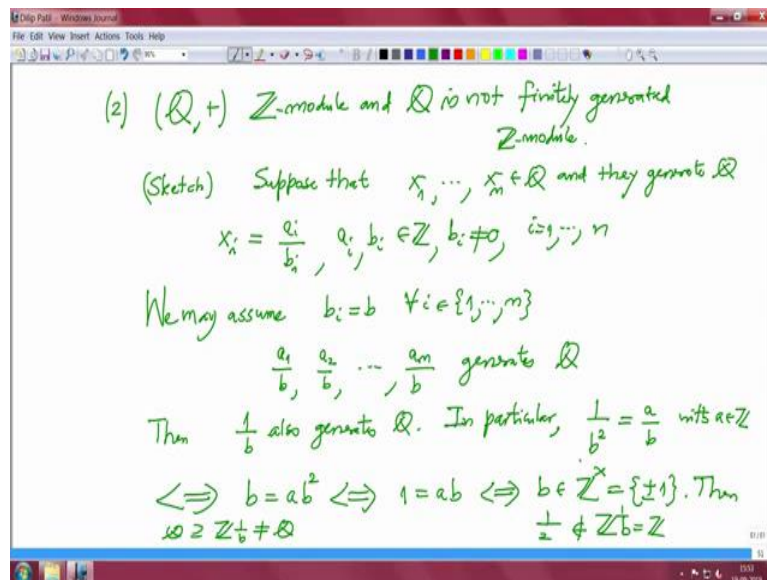 Dilip Patil - Windows Journal
File Edit View Insert Actions Tools Help
(2) (ℚ, +) ℤ-module and ℚ is not finitely generated
ℤ-module.
(Sketch) Suppose that x₁, ..., xₙ ∈ ℚ and they generate ℚ
xᵢ = aᵢ/bᵢ, aᵢ, bᵢ ∈ ℤ, bᵢ ≠ 0, i=1, ..., n
We may assume bᵢ = b ∀ i ∈ {1, ..., n}
a₁/b, a₂/b, ..., aₙ/b generates ℚ
Then 1/b also generates ℚ. In particular, 1/b² = a/b with a ∈ ℤ
⟺ b = ab² ⟺ 1 = ab ⟺ b ∈ ℤ^× = {±1}. Then
ℤ 1/b ≠ ℚ 1/2 ∉ ℤ 1/b = ℤ